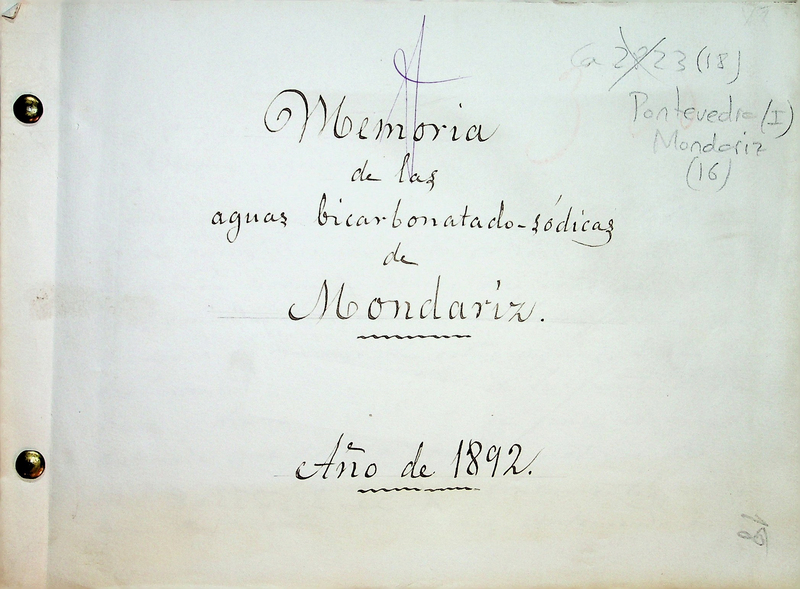 Memoria
de las
aguas bicarbonatado-sódicas
de
Mondariz.
Año de 1892.
23 (18)
Pontevedra (I)
Mondariz
(16)